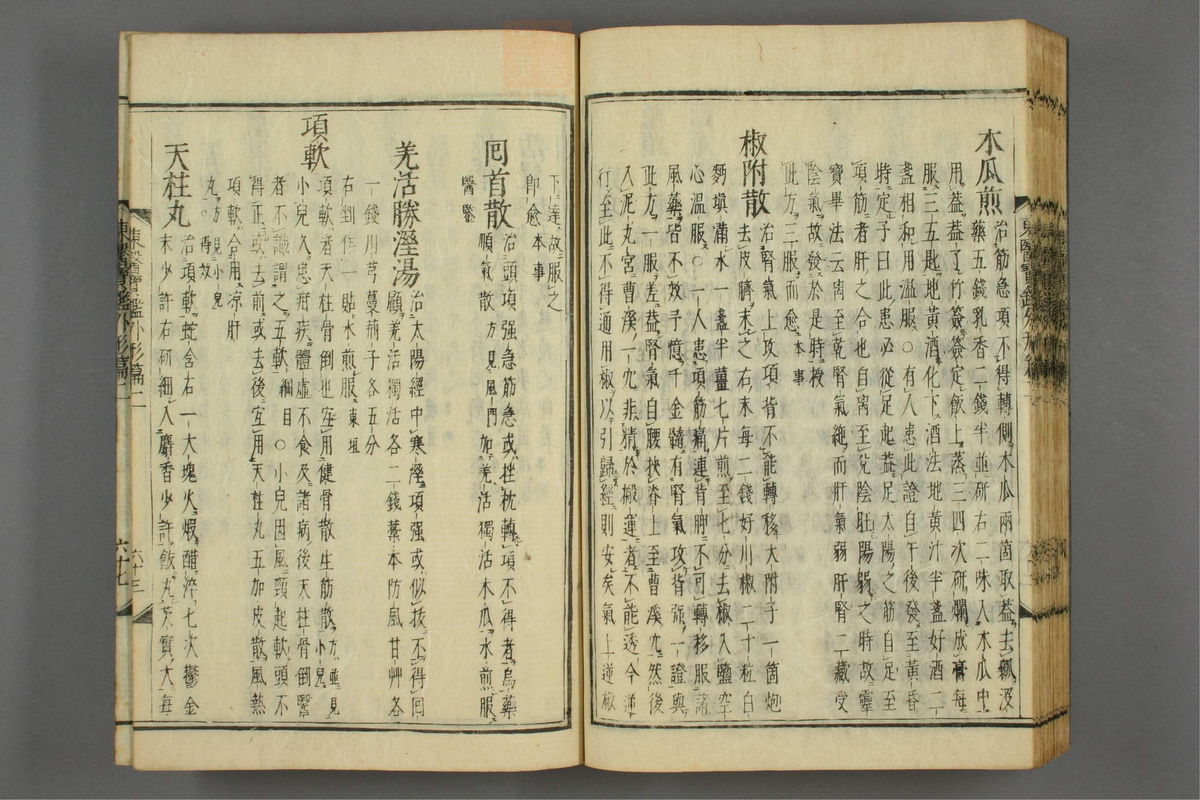 木瓜煎
治筋急項不得轉側木瓜兩箇取葢去瓤沒
藥五錢乳香二錢半並研右二味入木瓜中
用葢葢了竹簽簽定飯上蒸三四次研爛成膏每
服三五匙地黃酒化下酒法地黃汁半盞好酒二
盞相和用溫服○有人患此證自午後發至黃昏
時定予曰此患必從足起葢足太陽之筋自足至
項筋者肝之合也自离至兌陰旺陽弱之時故靈
寶畢法云离至乾腎氣絶而肝氣弱肝腎二藏受
陰氣故發於是時授
此方三服而愈本事
椒附散
治腎氣上攻項背不能轉移大附子一箇炮
去皮臍末之右末每二錢好川椒二十粒白
麪塡滿水一盞半薑七片煎至七分去椒入鹽空
心溫服○一人患項筋痛連背胛不可轉移服諸
風藥皆不效予憶千金髓有腎氣攻背强一證與
此方一服差葢腎氣自腰挾脊上至曹溪穴然後
入泥丸宮曹溪一穴非精於搬運者不能透今逆
行至此不得通用椒以引歸經則安矣氣上逆椒
下達故服之
卽愈本事
囘首散
治頭項强急筋急或挫枕轉項不得者烏藥
順氣散方見風門加羌活獨活木瓜水煎服
醫鑒
羌活勝溼湯
治太陽經中寒溼項强或似拔不得囘
顧羌活獨活各二錢藁本防風甘艸各
一錢川芎蔓荊子各五分
右剉作一貼水煎服東垣
項軟
項軟者天柱骨倒也宜用健骨散生筋散方並見小兒
小兒久患疳疾體虛不食及諸病後天柱骨倒醫
者不識謂之五軟綱目○小兒因風頸起軟頭不
得正或去前或去後宜用天柱丸五加皮散風熱
項軟合用凉肝
丸方見小兒○得效
天柱丸
治項軟蛇含石一大塊火煆醋淬七次鬱金
末少許右研細入麝香少許飯丸芡實大每
東醫寶鑑外形篇二
六十三
六十七